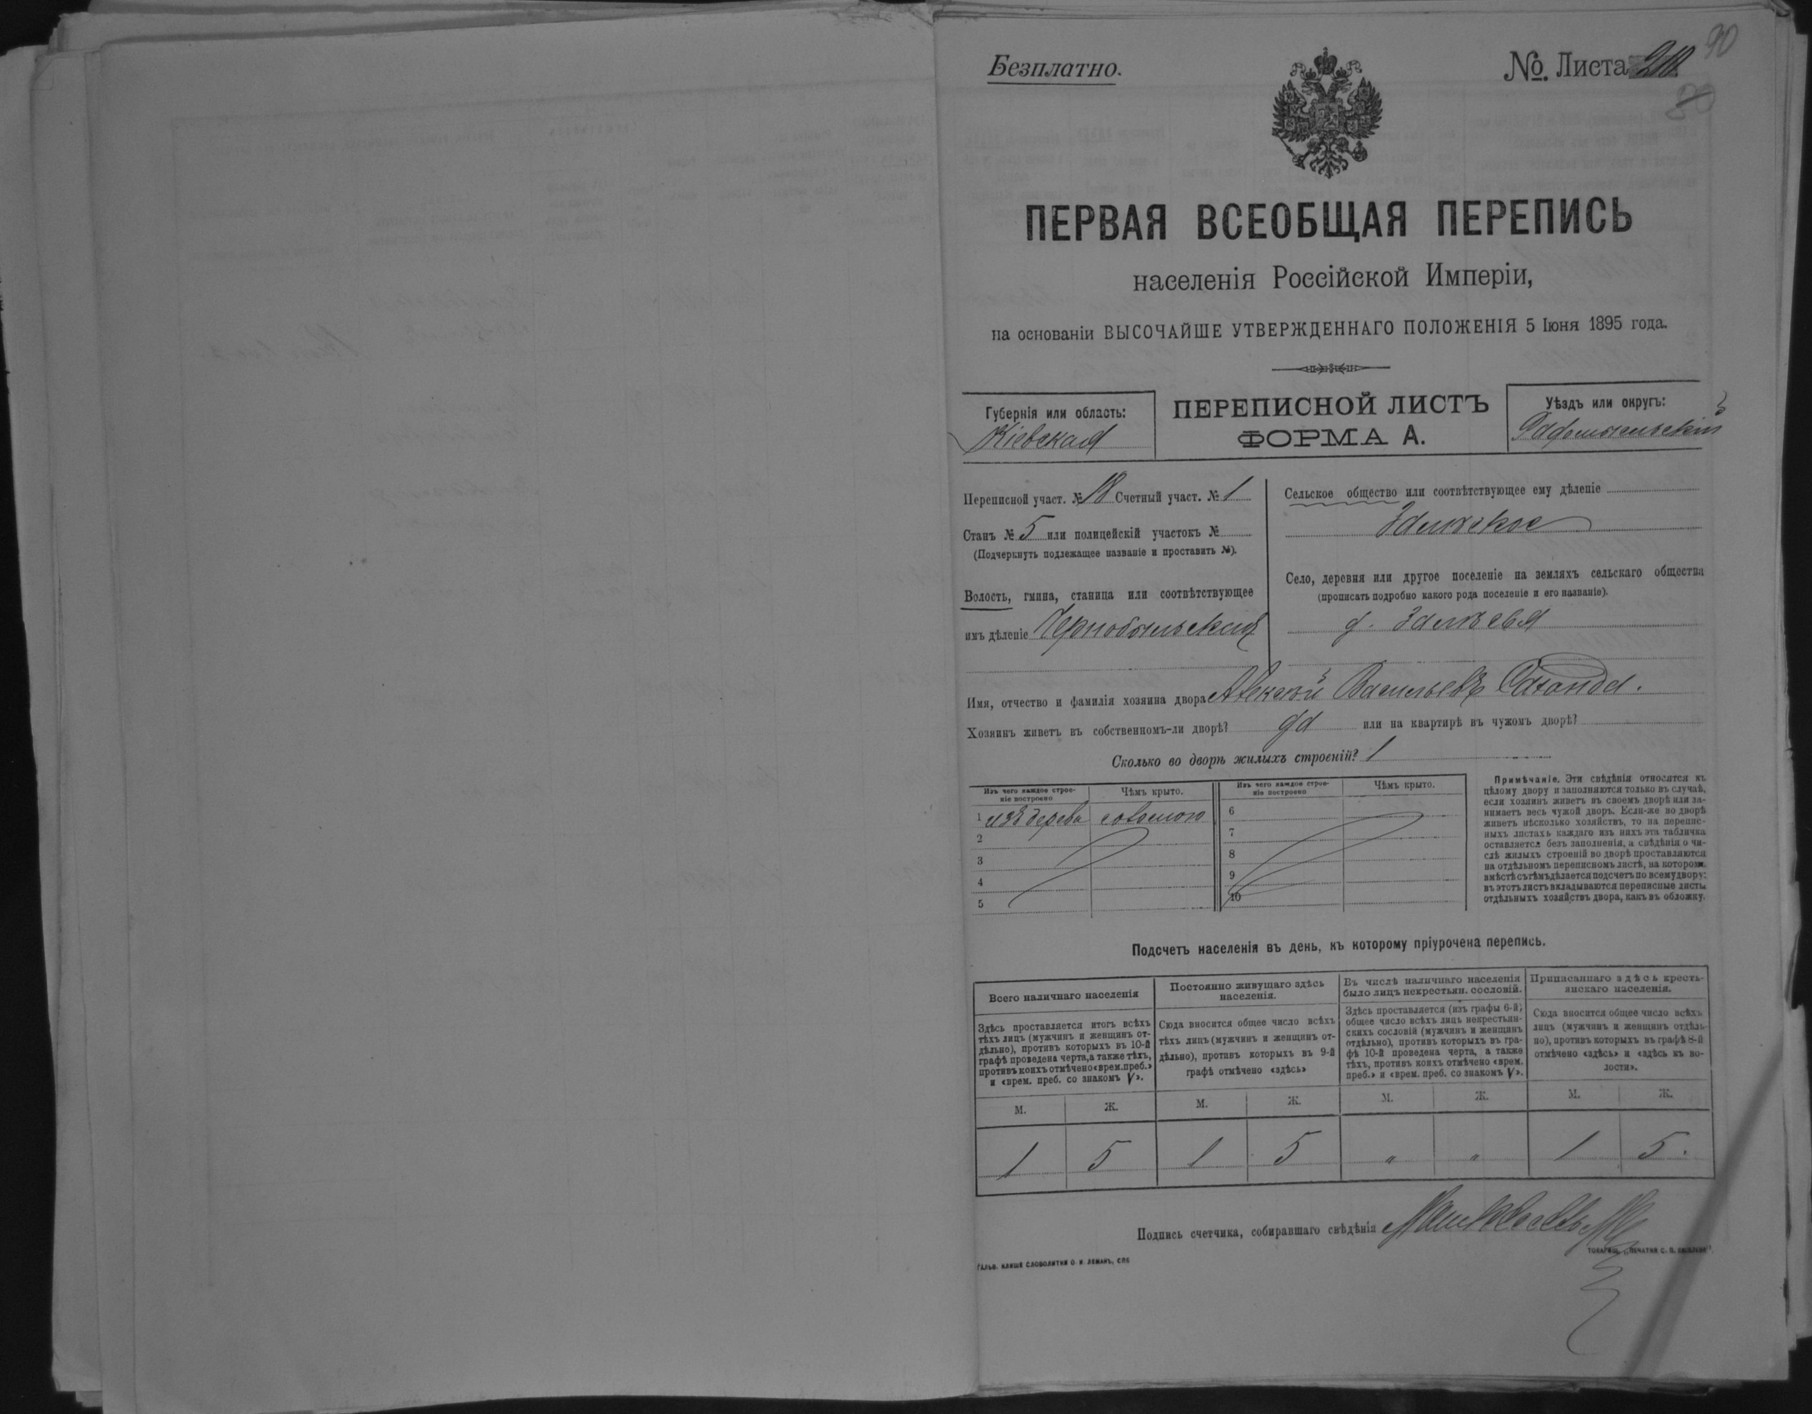 Безплатно.
№. Листа
90
ПЕРВАЯ ВСЕОБЩАЯ ПЕРЕПИСЬ
населенія Россійской Имперіи,
на основаніи ВЫСОЧАЙШЕ УТВЕРЖДЕННАГО ПОЛОЖЕНІЯ 5 Іюня 1895 года.
Губернія или область:
Кіевская
ПЕРЕПИСНОЙ ЛИСТЪ
ФОРМА А.
Уѣздъ или округъ:
Радомысльскій
Переписной участ. № 18 Счетный участ. № 1
Станъ № 5 или полицейскій участокъ №
(Подчеркнуть подлежащее названіе и проставить №).
Волость, гмина, станица или соотвѣтствующее
имъ дѣленіе Чернобыльская
Сельское общество или соотвѣтствующее ему дѣленіе
Село, деревня или другое поселеніе на земляхъ сельскаго общества
(прописать подробно какого рода поселеніе и его названіе).
д. Залѣсья
Имя, отчество и фамилія хозяина двора Алексѣй Васильевъ
Хозяинъ живетъ въ собственномъ-ли дворѣ? да или на квартирѣ въ чужомъ дворѣ?
Сколько во дворѣ жилыхъ строеній? 1
Изъ чего каждое строе-
ніе построено
Чѣмъ крыто.
Изъ чего каждое строе-
ніе построено
Чѣмъ крыто.
1 изъ дерева соломою
2
3
4
5
6
7
8
9
10
Примѣчаніе. Эти свѣдѣнія относятся къ
цѣлому двору и заполняются только въ случаѣ,
если хозяинъ живетъ въ своемъ дворѣ или за-
нимаетъ весь чужой дворъ. Если-же во дворѣ
живетъ нѣсколько хозяйствъ, то на перепис-
ныхъ листахъ каждаго изъ нихъ эта табличка
оставляется безъ заполненія, а свѣдѣнія о чи-
слѣ жилыхъ строеній во дворѣ проставляются
на отдѣльномъ переписномъ листѣ, на которомъ
вмѣстѣ съ тѣмъ дѣлается подсчетъ по всему двору:
въ этотъ листъ вкладываются переписные листы
отдѣльныхъ хозяйствъ двора, какъ въ обложку.
Подсчетъ населенія въ день, къ которому пріурочена перепись.
Всего наличнаго населенія
Постоянно живущаго здѣсь
населенія.
Въ числѣ наличнаго населенія
было лицъ некрестьян. сословій.
Приписаннаго здѣсь кресть-
янскаго населенія.
Здѣсь проставляется итогъ всѣхъ
тѣхъ лицъ (мужчинъ и женщинъ от-
дѣльно), противъ которыхъ въ 10-й
графѣ проведена черта, а также тѣхъ,
противъ коихъ отмѣчено «врем. преб.»
и «врем. преб. со знакомъ V».
Сюда вносится общее число всѣхъ
тѣхъ лицъ (мужчинъ и женщинъ от-
дѣльно), противъ которыхъ въ 9-й
графѣ отмѣчено «здѣсь»
Здѣсь проставляется (изъ графы 6-й)
общее число всѣхъ лицъ некрестьян-
скихъ сословій (мужчинъ и женщинъ
отдѣльно), противъ которыхъ въ гра-
фѣ 10-й проведена черта, а также
тѣхъ, противъ коихъ отмѣчено «врем.
преб.» и «врем. преб. со знакомъ V».
Сюда вносится общее число всѣхъ
лицъ (мужчинъ и женщинъ отдѣль-
но), противъ которыхъ въ графѣ 8-й
отмѣчено «здѣсь» и «здѣсь къ во-
лости».
М. Ж. М. Ж. М. Ж. М. Ж.
1 5 1 5 " " 1 5.
Подпись счетчика, собиравшаго свѣдѣнія
ГАЛЬВ. КЛИШЕ СЛОВОЛИТНИ О. И. ЛЕМАНЪ, СПБ